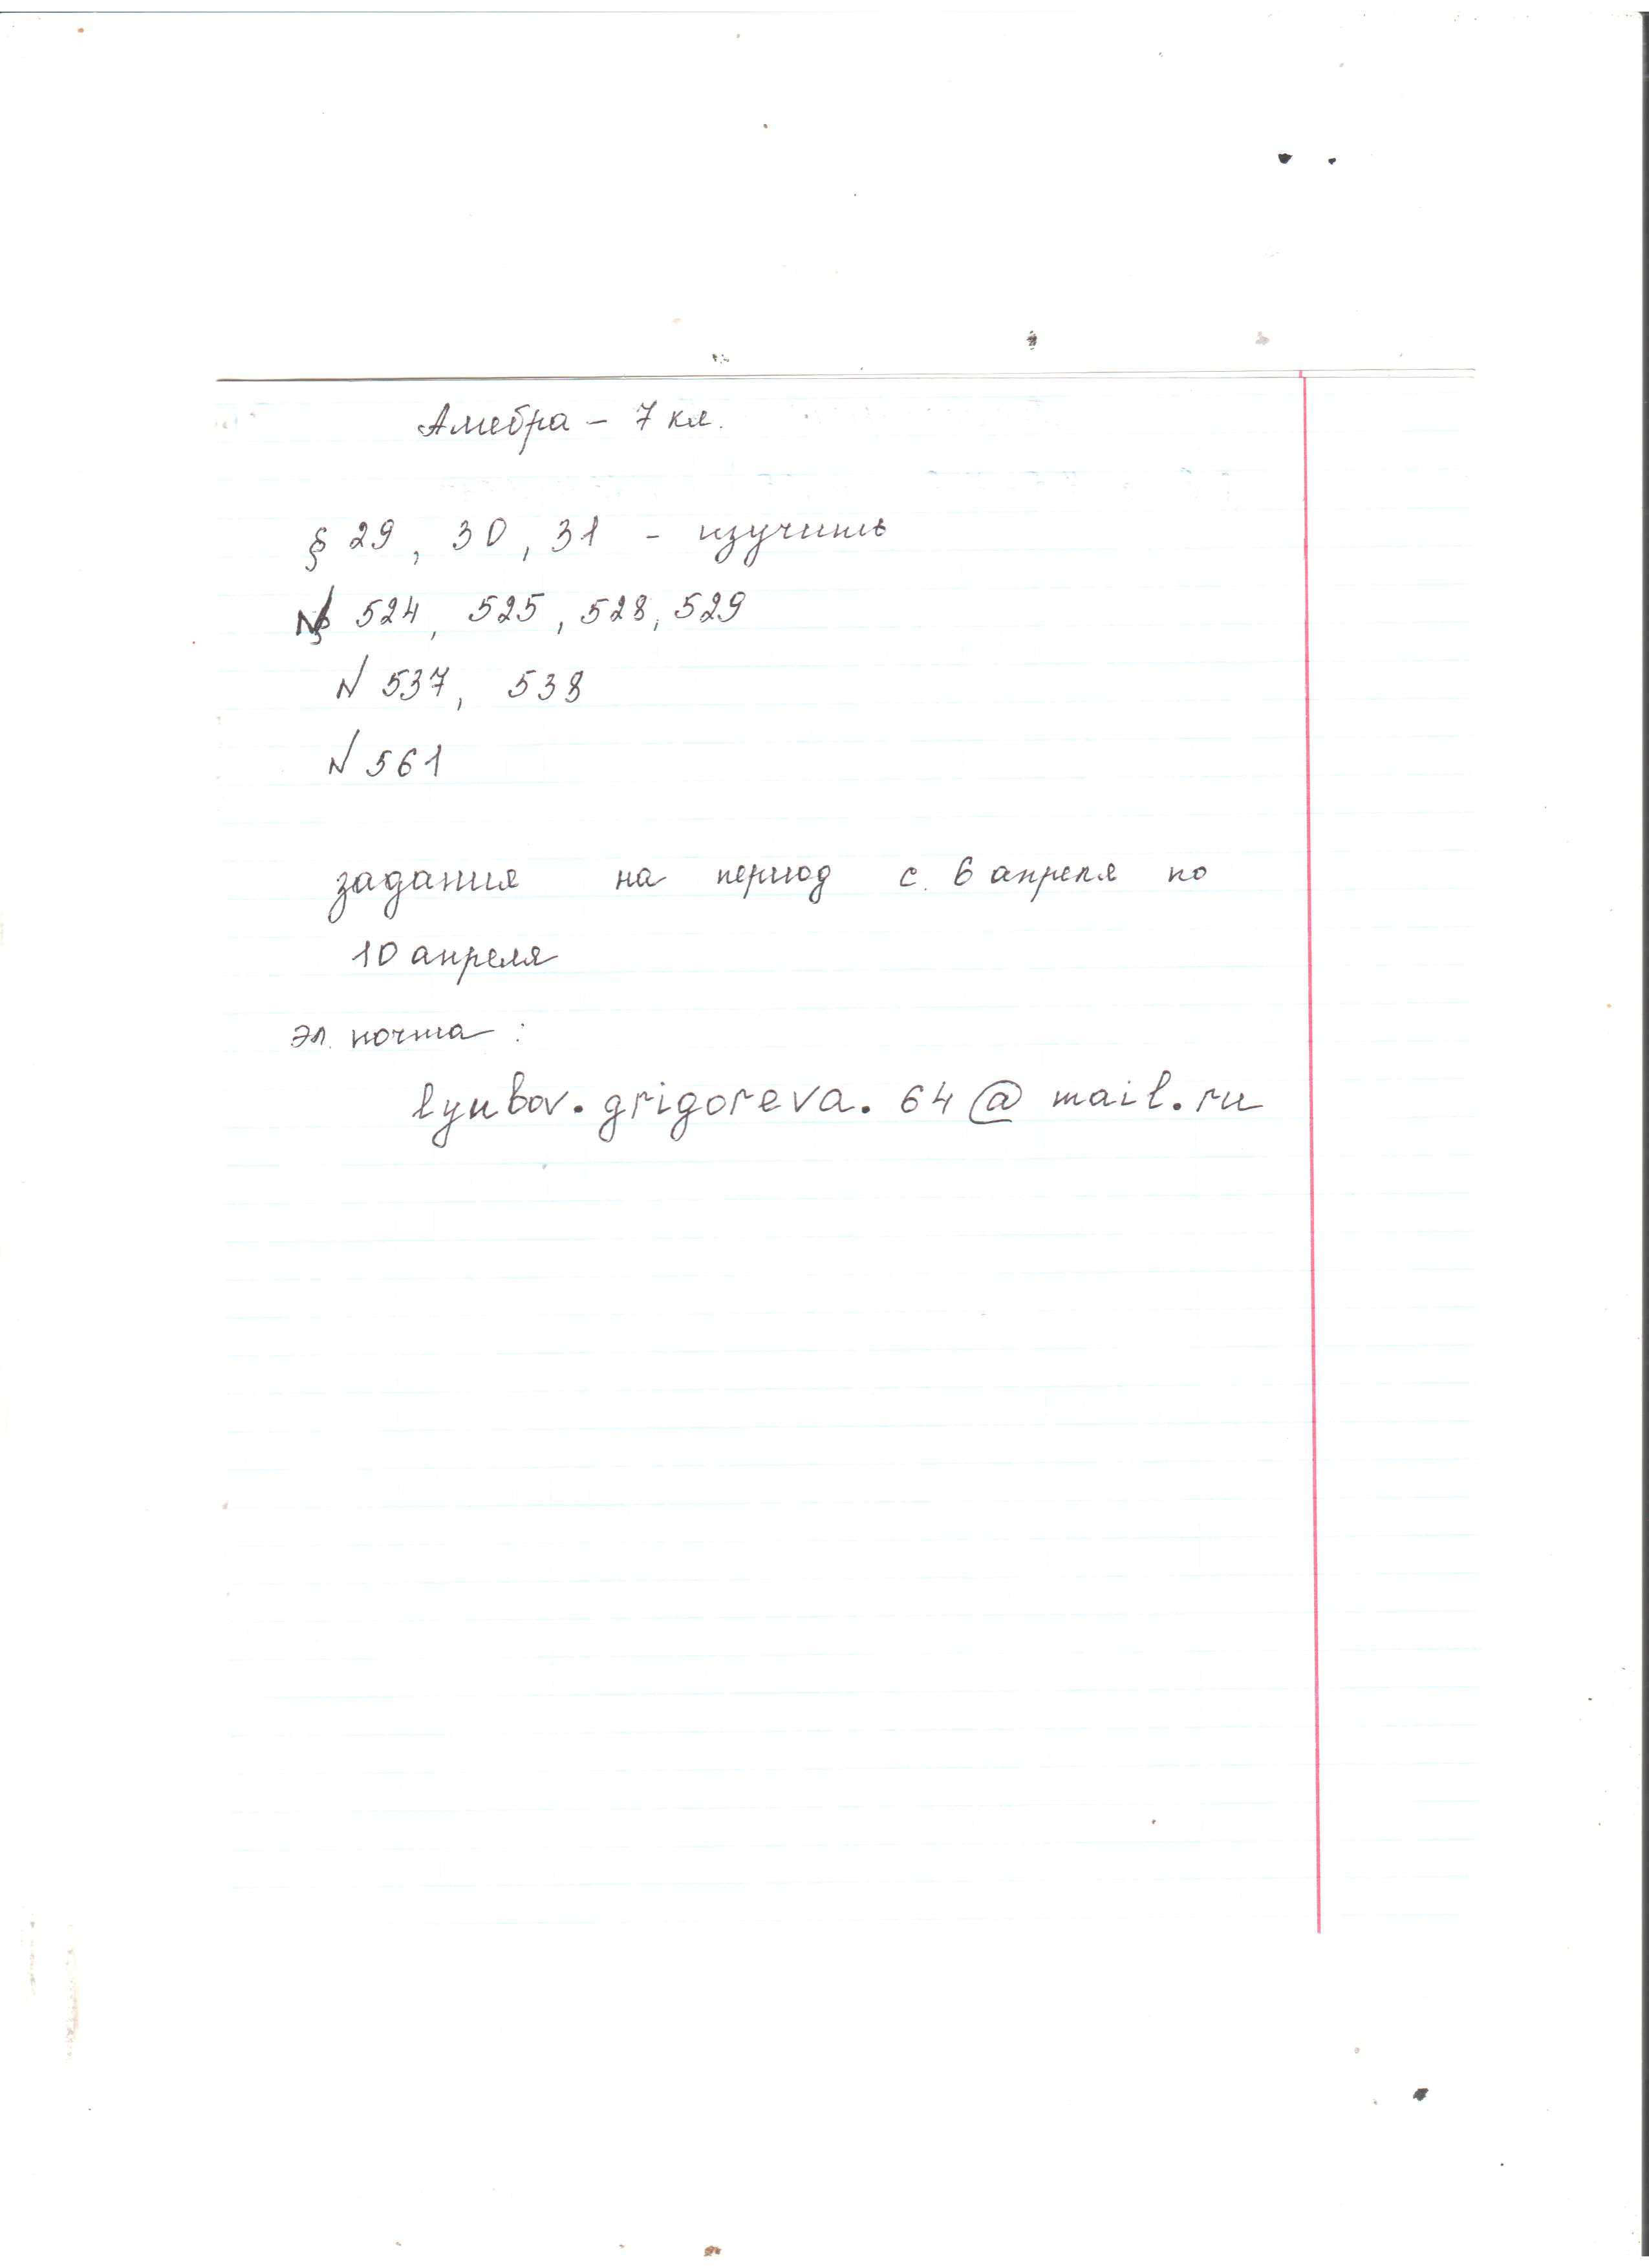 Алгебра – 7 кл.
§ 29, 30, 31 - изучить
№ 524, 525, 528, 529
N 537, 538
N 561
задания на период с. 6 апреля по
10 апреля
эл. почта :
lyubov.grigoreva.64@mail.ru